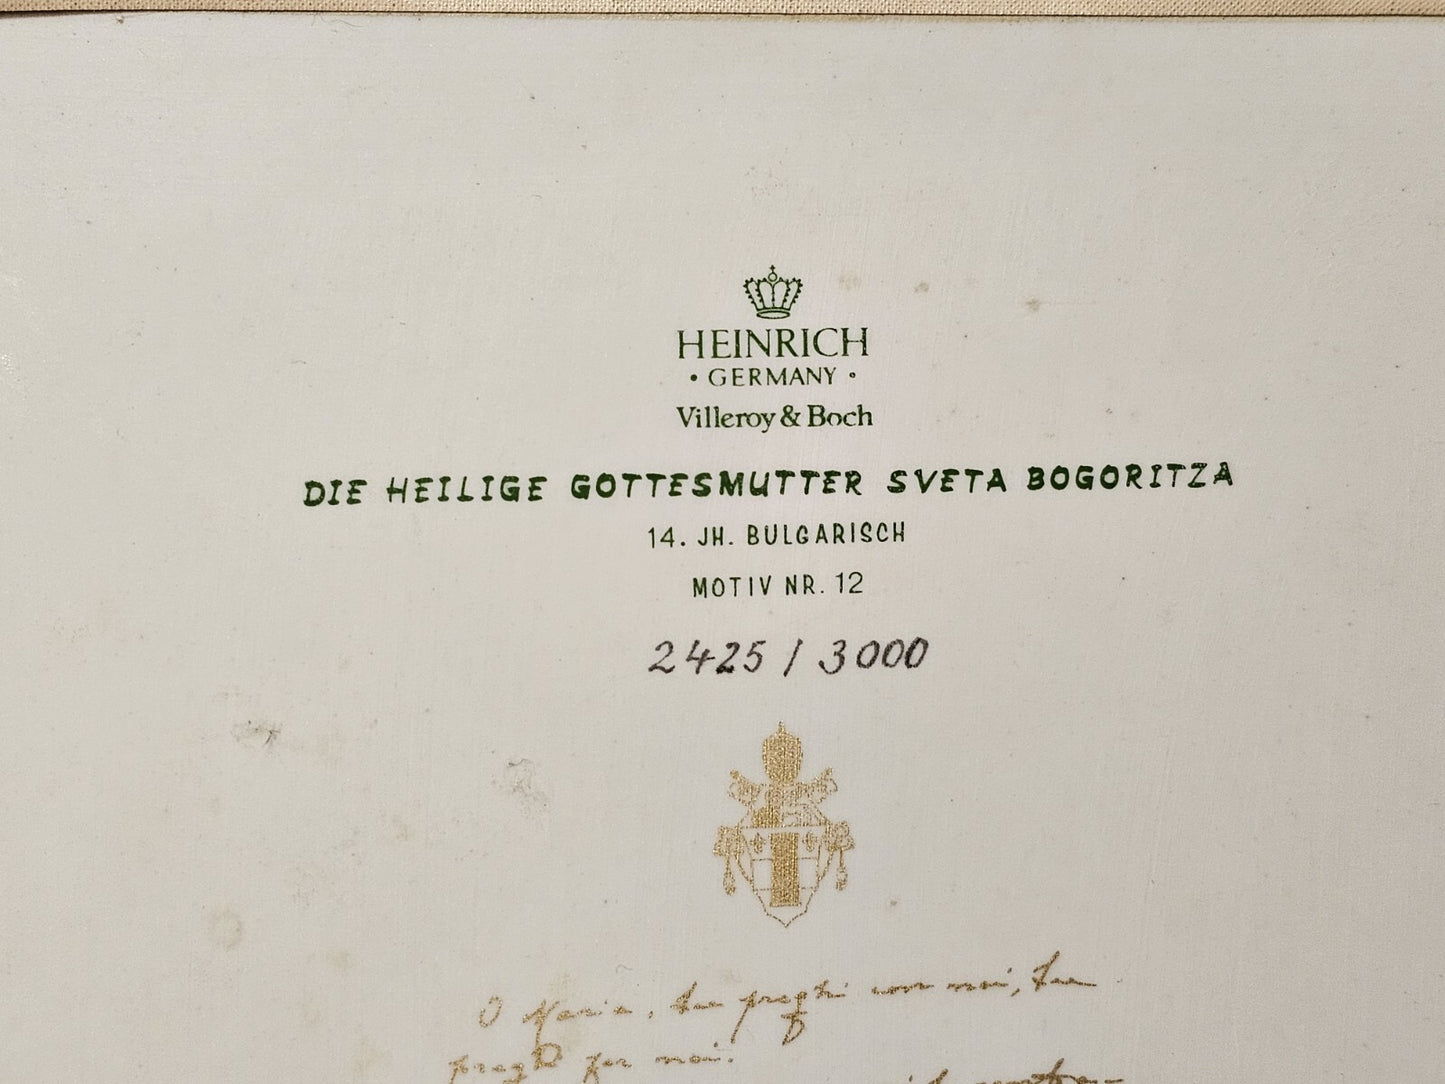 HEINRICH
• GERMANY •
Villeroy & Boch
DIE HEILIGE GOTTESMUTTER SVETA BOGORITZA
14. JH. BULGARISCH
MOTIV NR. 12
2425 / 3000
O Maria, tu preghi con noi, tu
preghi per noi.